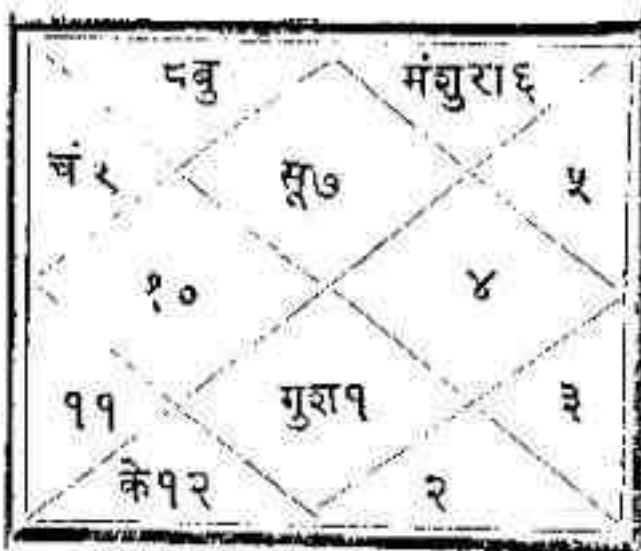 ८बु
मंशुरा६
चं९
सू७
५
१०
४
११
गुश१
३
के१२
२